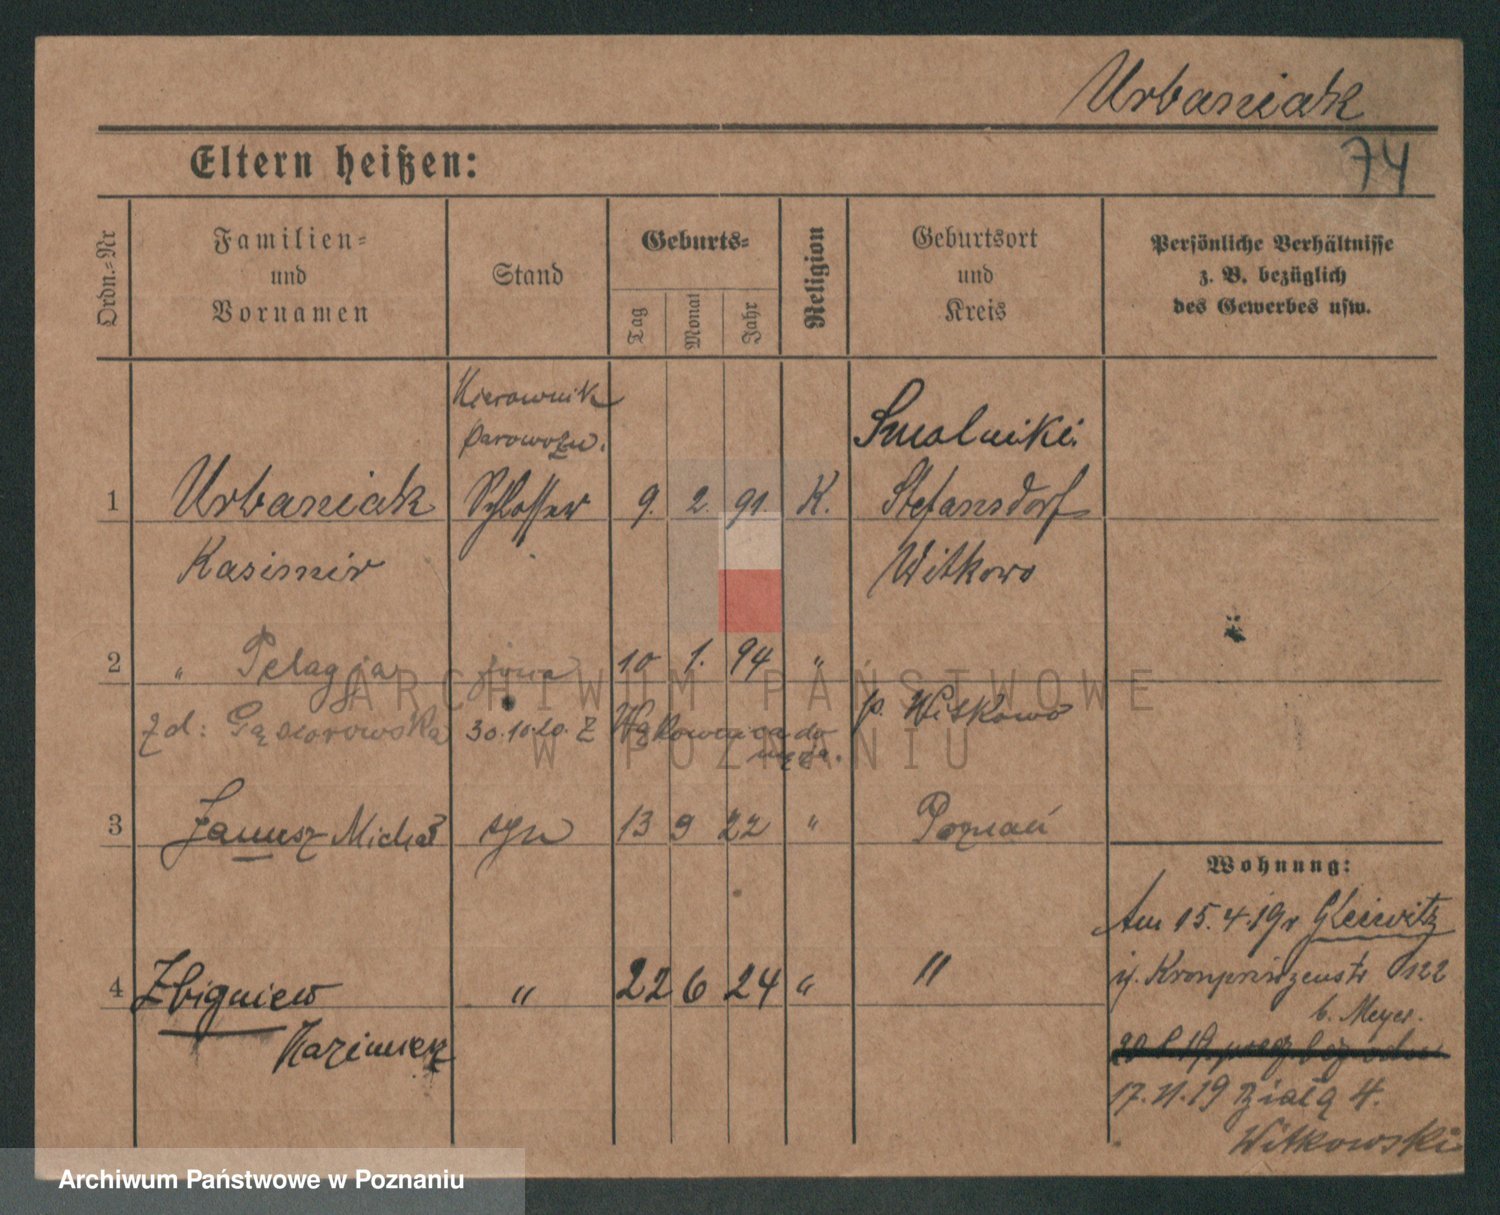 Urbaniak
74
Eltern heißen:
Ordn.=Nr
Familien=
und
Vornamen
Stand
Geburts=
Tag
Monat
Jahr
Religion
Geburtsort
und
Kreis
Persönliche Verhältnisse
z. B. bezüglich
des Gewerbes usw.
Kierownik
parowozu.
Smolniki
1 Urbaniak Schlosser 9. 2. 91. K. Stefansdorf
Kasimir Witkowo
2 " Pelagja żona 10 1. 94 "
p. Witkowo
zd: Gąsiorowska 30.10.20. Z Wąkownica do
męża.
3 Janusz Michał syn 13 9 22 " Poznań
Wohnung:
Am 15.4.19 Gleiwitz
4 Zbigniew " 22 6 24 " "
Kronprinzenstr 122
b. Meyer.
Kazimierz
17.11.19 Biała 4.
Witkowski
ARCHIWUM PAŃSTWOWE
W POZNANIU
Archiwum Państwowe w Poznaniu